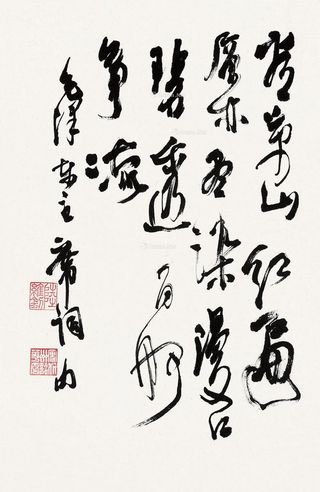 看萬山红遍
层林尽染漫江
碧透百舸
争流
毛泽东主席词句